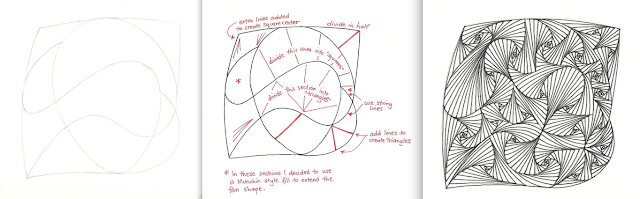 extra lines added
to create square center
divide in half
*
divide this area into "squares"
*
divide this section into
"triangles"
*
*
use strong
lines
add lines to
create triangles
* In these sections I decided to use
a Munchin style fill to extend the
fan shape.